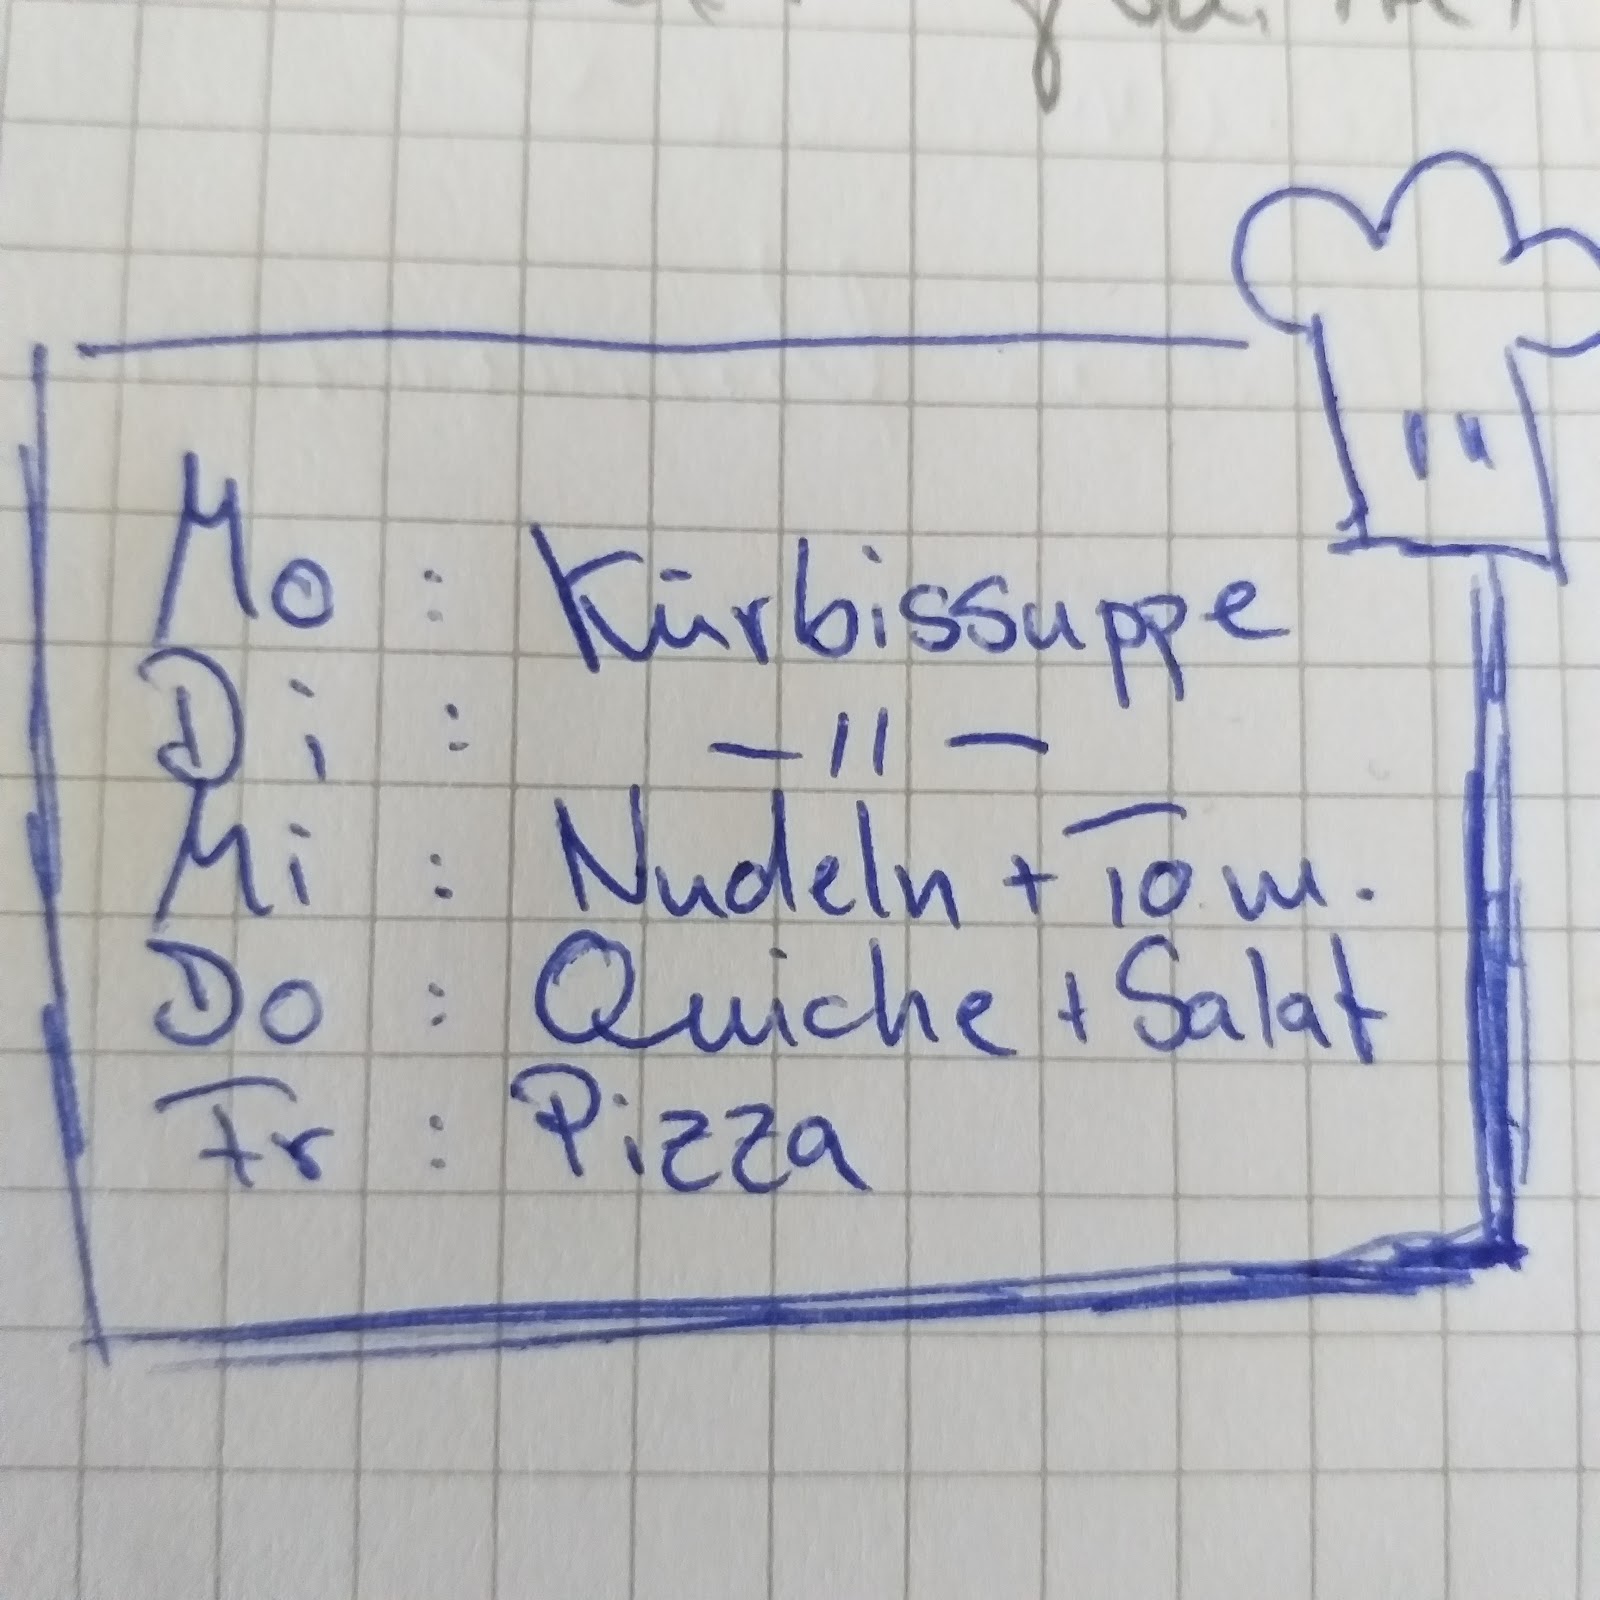 Mo : Kürbissuppe
Di : — " —
Mi : Nudeln + Tom.
Do : Quiche + Salat
Fr : Pizza